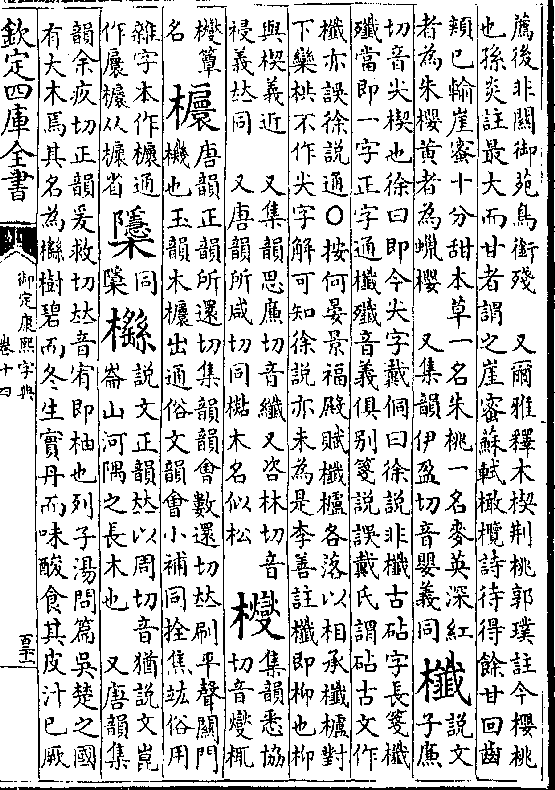 薦後非關御苑鳥銜殘　又爾雅釋木楔荆桃郭璞註今櫻桃
也孫炎註最大而甘者謂之崖蜜蘇軾橄欖詩待得餘甘回齒
頰已輸崖蜜十分甜本草一名朱桃一名麥英深紅
者為朱櫻黄者為蠟櫻　又集韻伊盈切音嬰義同　櫼　說文子廉
切音尖楔也徐曰即今尖字戴侗曰徐說非櫼古砧字長箋櫼
殲當即一字正字通櫼殲音義俱別箋說誤戴氏謂砧古文作
櫼亦誤徐說通○按何晏景福殿賦櫼櫨各落以相承櫼櫨對
下欒栱不作尖字解可知徐說亦未為是李善註櫼即枊也枊
與楔義近　又集韻思廉切音纖又咨林切音
祲義𠀤同　又唐韻所咸切同楷木名似松　㰔　集韻悉協切音燮㭯
㰔簟名　櫦　唐韻正韻所還切集韻韻會數還切𠀤刷平聲關門
機也玉韻木櫦出通俗文韻會小補同拴焦竑俗用
雜字本作櫦通作㕞櫦从櫦省　櫽　同檃　櫾　說文正韻𠀤以周切音猶說文崑
崙山河隅之長木也　又唐韻集
韻余救切正韻爰救切𠀤音宥即柚也列子湯問篇吳楚之國
有大木焉其名為櫾樹碧而冬生實丹而味酸食其皮汁已厥
欽定四庫全書
御定康熙字典
卷十四